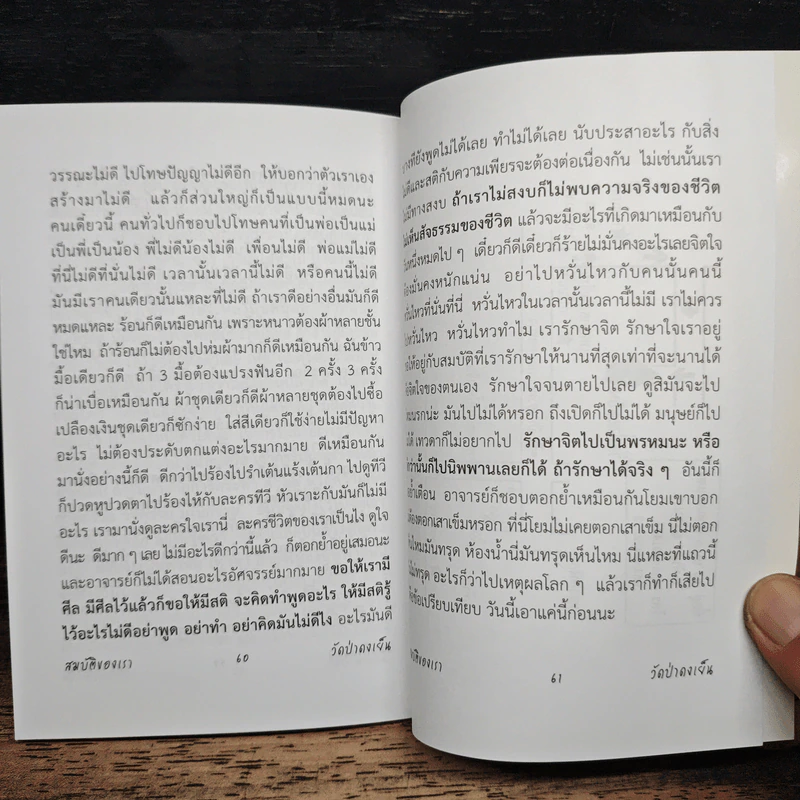 วรรณะไม่ดี ไปโทษปัญญาไม่ดีอีก ให้บอกว่าตัวเราเอง
สร้างมาไม่ดี แล้วก็ส่วนใหญ่ก็เป็นแบบนี้หมดนะ
คนเดี๋ยวนี้ คนทั่วไปก็ชอบไปโทษคนที่เป็นพ่อเป็นแม่
เป็นพี่เป็นน้อง พี่ไม่ดีน้องไม่ดี เพื่อนไม่ดี พ่อแม่ไม่ดี
ที่นี่ไม่ดีที่นั่นไม่ดี เวลานั้นเวลานี้ไม่ดี หรือคนนี้ไม่ดี
มันมีเราคนเดียวนั้นแหละที่ไม่ดี ถ้าเราดีอย่างอื่นมันก็ดี
หมดแหละ ร้อนก็ดีเหมือนกัน เพราะหนาวต้องผ้าหลายชั้น
ใช่ไหม ถ้าร้อนก็ไม่ต้องไปห่มผ้ามากก็ดีเหมือนกัน ฉันข้าว
มื้อเดียวก็ดี ถ้า 3 มื้อต้องแปรงฟันอีก 2 ครั้ง 3 ครั้ง
ก็น่าเบื่อเหมือนกัน ผ้าชุดเดียวก็ดีผ้าหลายชุดต้องไปซื้อ
เปลืองเงินชุดเดียวก็ซักง่าย ใส่สีเดียวก็ใช้ง่ายไม่มีปัญหา
อะไร ไม่ต้องประดับตกแต่งอะไรมากมาย ดีเหมือนกัน
มานั่งอย่างนี้ก็ดี ดีกว่าไปร้องไปรำเต้นแร้งเต้นกา ไปดูทีวี
ก็ปวดหูปวดตาไปร้องไห้กับละครทีวี หัวเราะกับมันก็ไม่มี
อะไร เรามานั่งดูละครใจเรานี่ ละครชีวิตของเราเป็นไง ดูใจ
ดีนะ ดีมาก ๆ เลย ไม่มีอะไรดีกว่านี้แล้ว ก็ตอกย้ำอยู่เสมอนะ
และอาจารย์ก็ไม่ได้สอนอะไรอัศจรรย์มากมาย ขอให้เรามี
ศีล มีศีลไว้แล้วก็ขอให้มีสติ จะคิดทำพูดอะไร ให้มีสติรู้
ไว้อะไรไม่ดีอย่าพูด อย่าทำ อย่าคิดมันไม่ดีไง อะไรมันดี
สมบัติของเรา 60 วัดป่าดงเย็น
บางทียังพูดไม่ได้เลย ทำไม่ได้เลย นับประสาอะไร กับสิ่ง
ไม่ดีและสติกับความเพียรจะต้องต่อเนื่องกัน ไม่เช่นนั้นเรา
ไม่มีทางสงบ ถ้าเราไม่สงบก็ไม่พบความจริงของชีวิต
ไม่เห็นสัจธรรมของชีวิต แล้วจะมีอะไรที่เกิดมาเหมือนกับ
หนึ่งหมดไป ๆ เดี๋ยวก็ดีเดี๋ยวก็ร้ายไม่มั่นคงอะไรเลยจิตใจ
ต้องมั่นคงหนักแน่น อย่าไปหวั่นไหวกับคนนั้นคนนี้
หวั่นไหวที่นั่นที่นี่ หวั่นไหวในเวลานั้นเวลานี้ไม่มี เราไม่ควร
หวั่นไหว หวั่นไหวทำไม เรารักษาจิต รักษาใจเราอยู่
ให้อยู่กับสมบัติที่เรารักษาให้นานที่สุดเท่าที่จะนานได้
จิตใจของตนเอง รักษาใจจนตายไปเลย ดูสิมันจะไป
นรกน่ะ มันไปไม่ได้หรอก ถึงเปิดก็ไปไม่ได้ มนุษย์ก็ไป
ได้ เทวดาก็ไม่อยากไป รักษาจิตไปเป็นพรหมนะ หรือ
กว่านั้นก็ไปนิพพานเลยก็ได้ ถ้ารักษาได้จริง ๆ อันนี้ก็
ย้ำเตือน อาจารย์ก็ชอบตอกย้ำเหมือนกันโยมเขาบอก
ต้องตอกเสาเข็มหรอก ที่นี่โยมไม่เคยตอกเสาเข็ม นี่ไม่ตอก
ไหมมันทรุด ห้องน้ำนี่มันทรุดเห็นไหม นี่แหละที่แถวนี้
ไม่ทรุด อะไรก็ว่าไปเหตุผลโลก ๆ แล้วเราก็ทำก็เสียไป
ข้อเปรียบเทียบ วันนี้เอาแค่นี้ก่อนนะ
สมบัติของเรา 61 วัดป่าดงเย็น